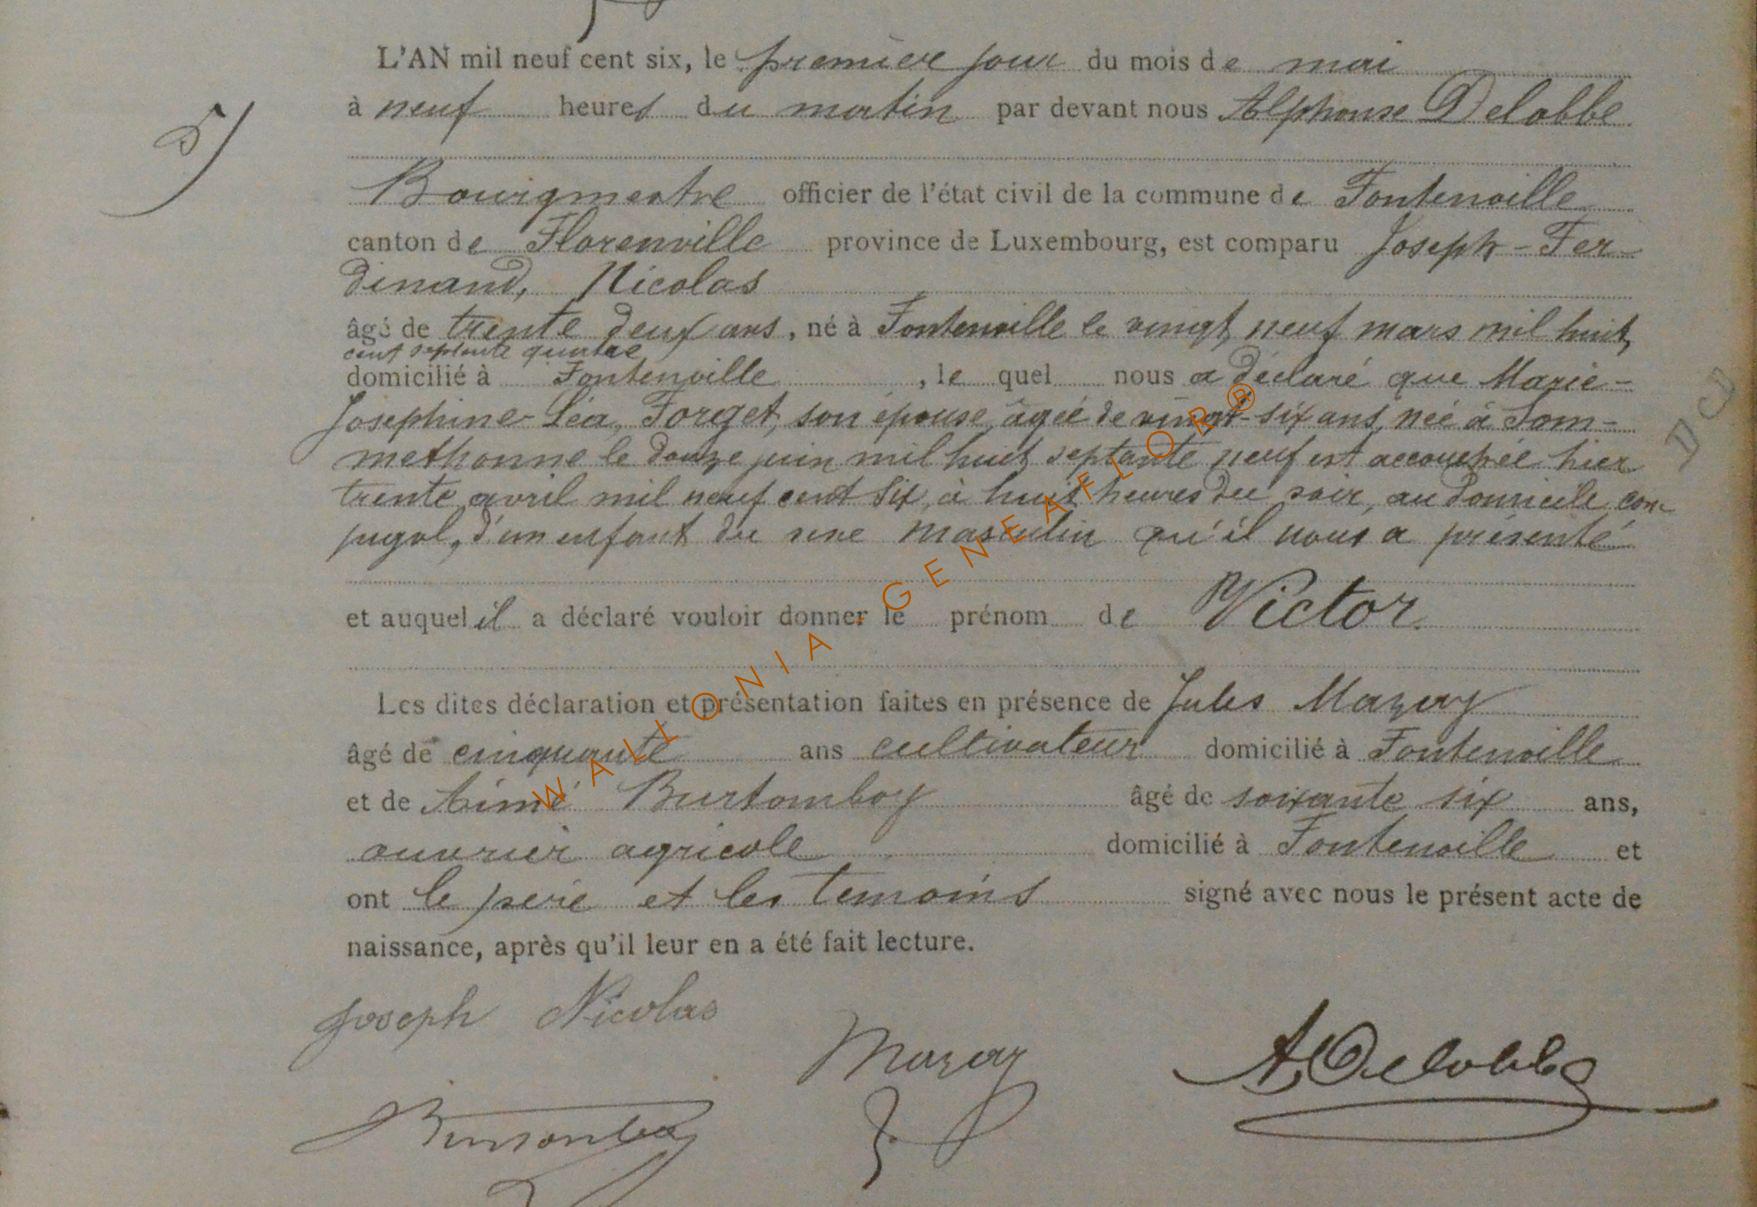 L'AN mil neuf cent six, le premier jour du mois de mai
5)
à neuf heures du matin par devant nous Alphonse Delobbe
Bourgmestre officier de l'état civil de la commune de Fontenoille
canton de Florenville province de Luxembourg, est comparu Joseph-Fer-
dinand, Nicolas
âgé de trente deux ans, né à Fontenoille le vingt neuf mars mil huit
cent septante quatre
domicilié à Fontenoille, le quel nous a déclaré que Marie-
Josephine-Léa, Forget, son épouse, âgée de vingt-six ans, née à Som-
methonne le douze juin mil huit septante neuf est accouchée hier
trente avril mil neuf cent six, à huit heures du soir, au domicile con-
jugal, d'un enfant du sexe masculin qu'il nous a présenté
et auquel il a déclaré vouloir donner le prénom de Victor.
Les dites déclaration et présentation faites en présence de Jules Mazay
âgé de cinquante ans cultivateur domicilié à Fontenoille
et de Aimé Burtomboy âgé de soixante six ans,
ouvrier agricole domicilié à Fontenoille et
ont le père et les temoins signé avec nous le présent acte de
naissance, après qu'il leur en a été fait lecture.
Joseph Nicolas
Mazay
A. Delobbe
WALLONIA - GENEAFLOR®